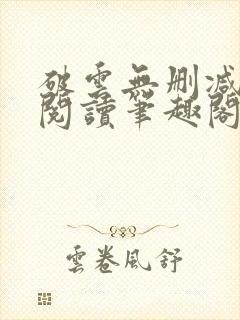 破雲無刪減
閱讀筆趣閣
雲卷風舒